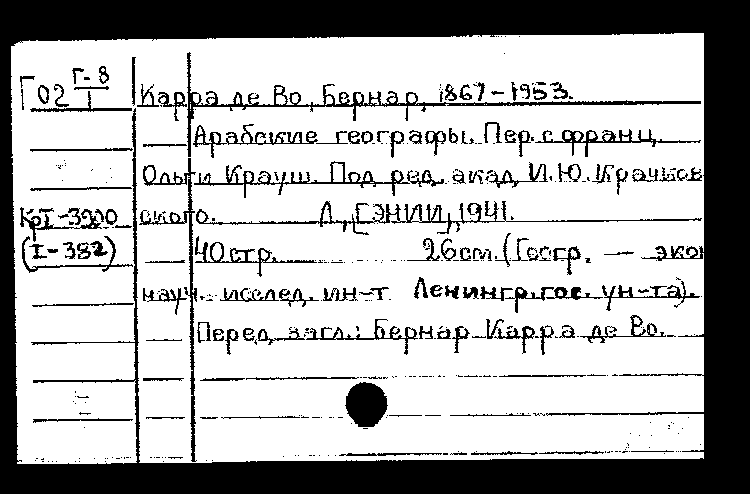 Г02 Г-8/1 Карра де Во, Бернар, 1867-1953.
Арабские географы. Пер. с франц.
Ольги Крауш. Под ред. акад. И.Ю. Крачков
КрI-3900 ского. Л., [ГЭНИИ], 1941.
(I-382) 40 стр. 26 см. (Госгр. — экон
науч. исслед. ин-т Ленингр. гос. ун-та).
Перед загл.: Бернар Карра де Во.